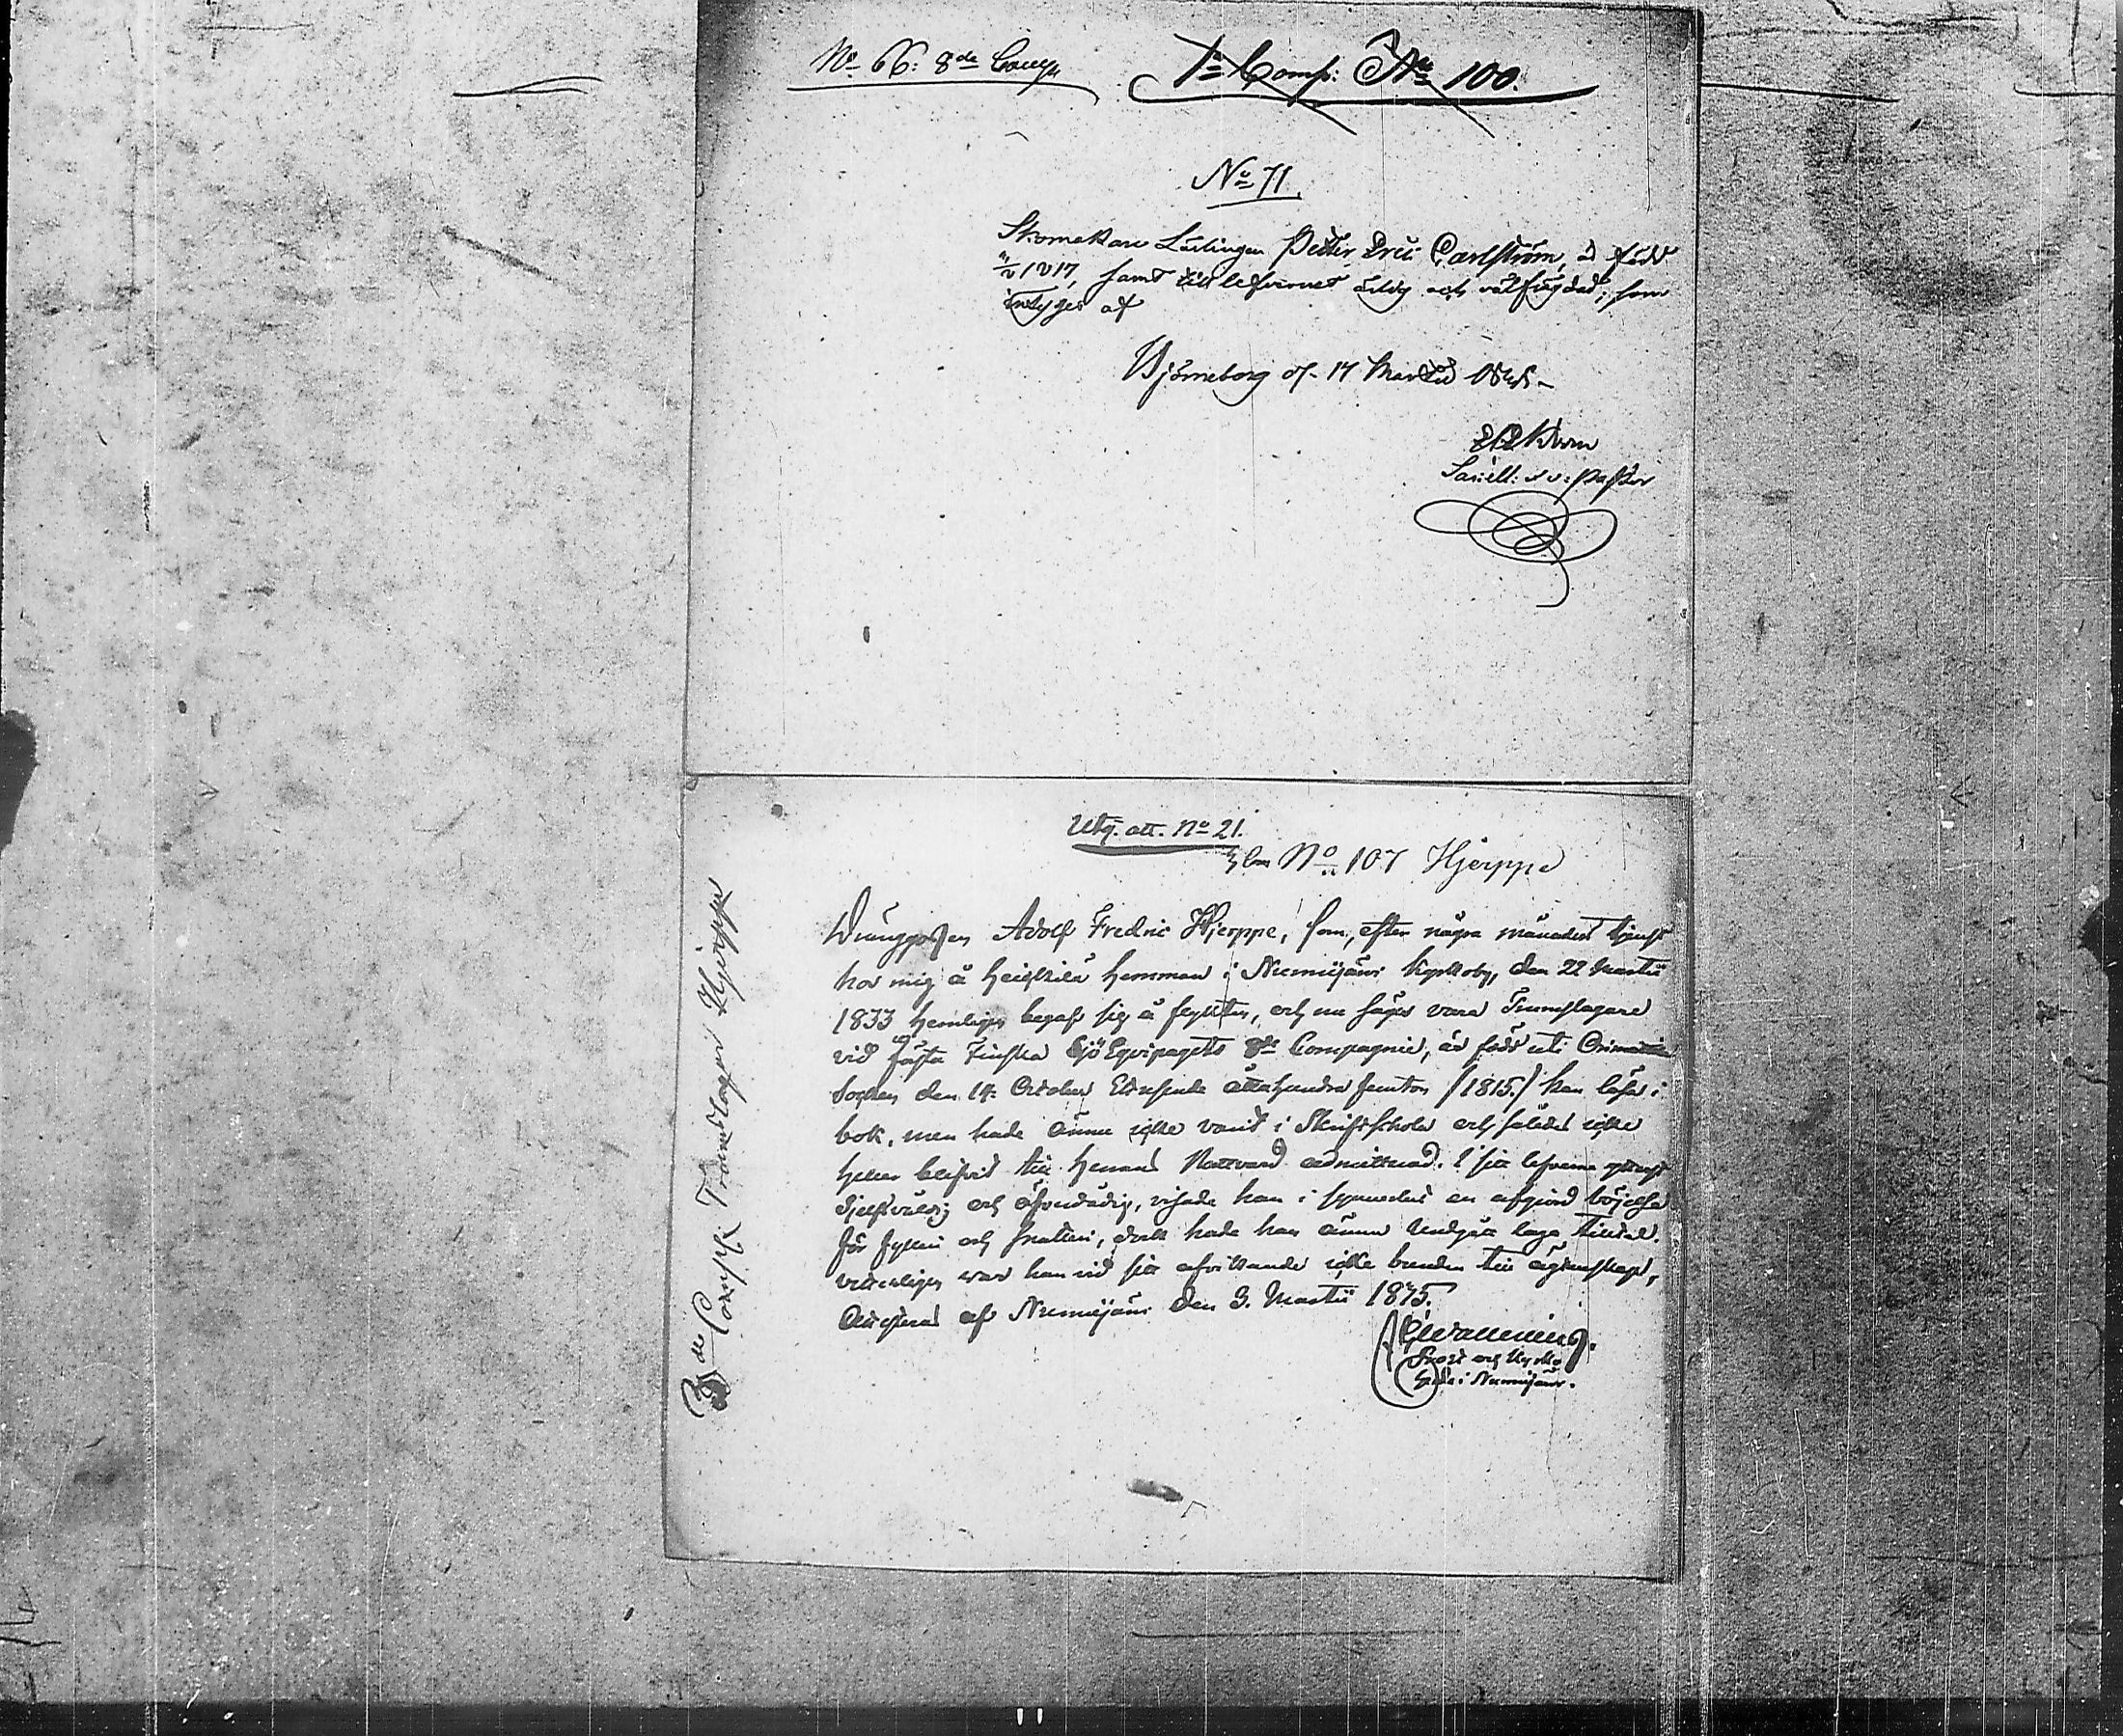 No 66: 8de Comp
1a Comp: No 100.
No 71.
Skomakare Lärlingen Petter Eric Carlström, är född
1817, samt till lefvernet ärlig och välfrägdad; som
intygas af
Björneborg d. 17 Martii
Sacell. v. Pastor
Utg. att. No 21.
No 107 Hjerppe
Dränggossen Adolf Fredric Hjerppe, som, efter några månaders tjenst
hos mig å Heickilä hemman i Nummijärvi Kyrkoby, den 22 Martii
1833 hemligen begaf sig å flykten, och nu säges vara Trumslagare
vid Första Finska Sjö Eqvipagets 8de Compagnie, är född uti Orimattila
Socken den 14 October Ettusende åttahundra femton /1815./ kan läsa i
bok, men hade ännu icke varit i Skriftschola och således icke
heller blifvit till Herrans Nattvard admitterad. I sitt lefverne ytterst
sjelfsvåldig och odåndig, visade han i synnerhet en afgjord böjelse
för fylleri och snatteri, dock hade han ännu undgått laga tilltal.
veterligen war han vid sitt afvikande icke bunden till ägtenskap,
Attesteras af Nummijärvi den 3. Martii 1835.
Prost och Kyrko
herde i Nummijärvi.
8de Compni Trumslagar Hjerppe